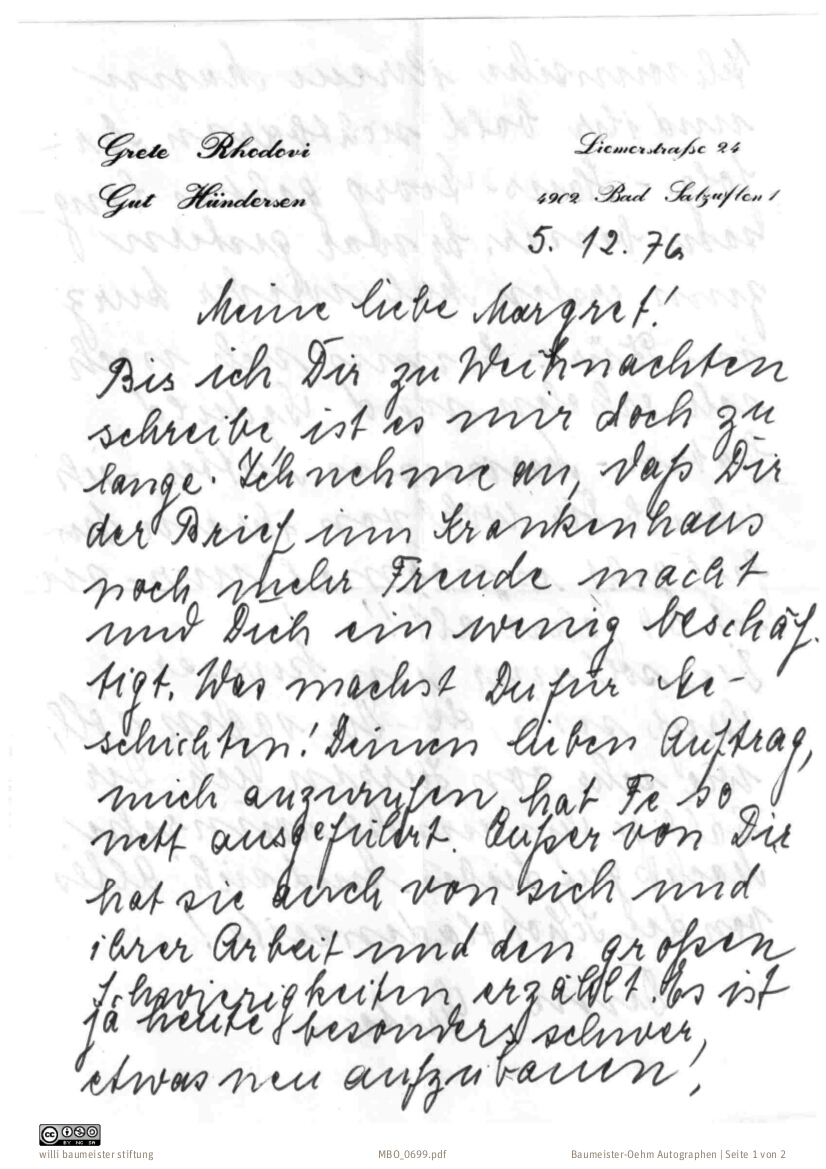 Grete Rhodovi
Gut Hündersen
Liemerstraße 24
4902 Bad Salzuflen 1
5. 12. 76
Meine liebe Margret!
Bis ich Dir zu Weihnachten
schreibe, ist es mir doch zu
lange. Ich nehme an, daß Dir
der Brief im Krankenhaus
noch mehr Freude macht
und Dich ein wenig beschäf-
tigt. Was machst Du für Ge-
schichten! Deinen lieben Auftrag,
mich anzurufen, hat Fe so
nett ausgeführt. Außer von Dir
hat sie auch von sich und
ihrer Arbeit und den großen
Schwierigkeiten erzählt. Es ist
ja heute besonders schwer,
etwas neu aufzubauen!
CC BY NC SA
willi baumeister stiftung
MBO_0699.pdf
Baumeister-Oehm Autographen | Seite 1 von 2